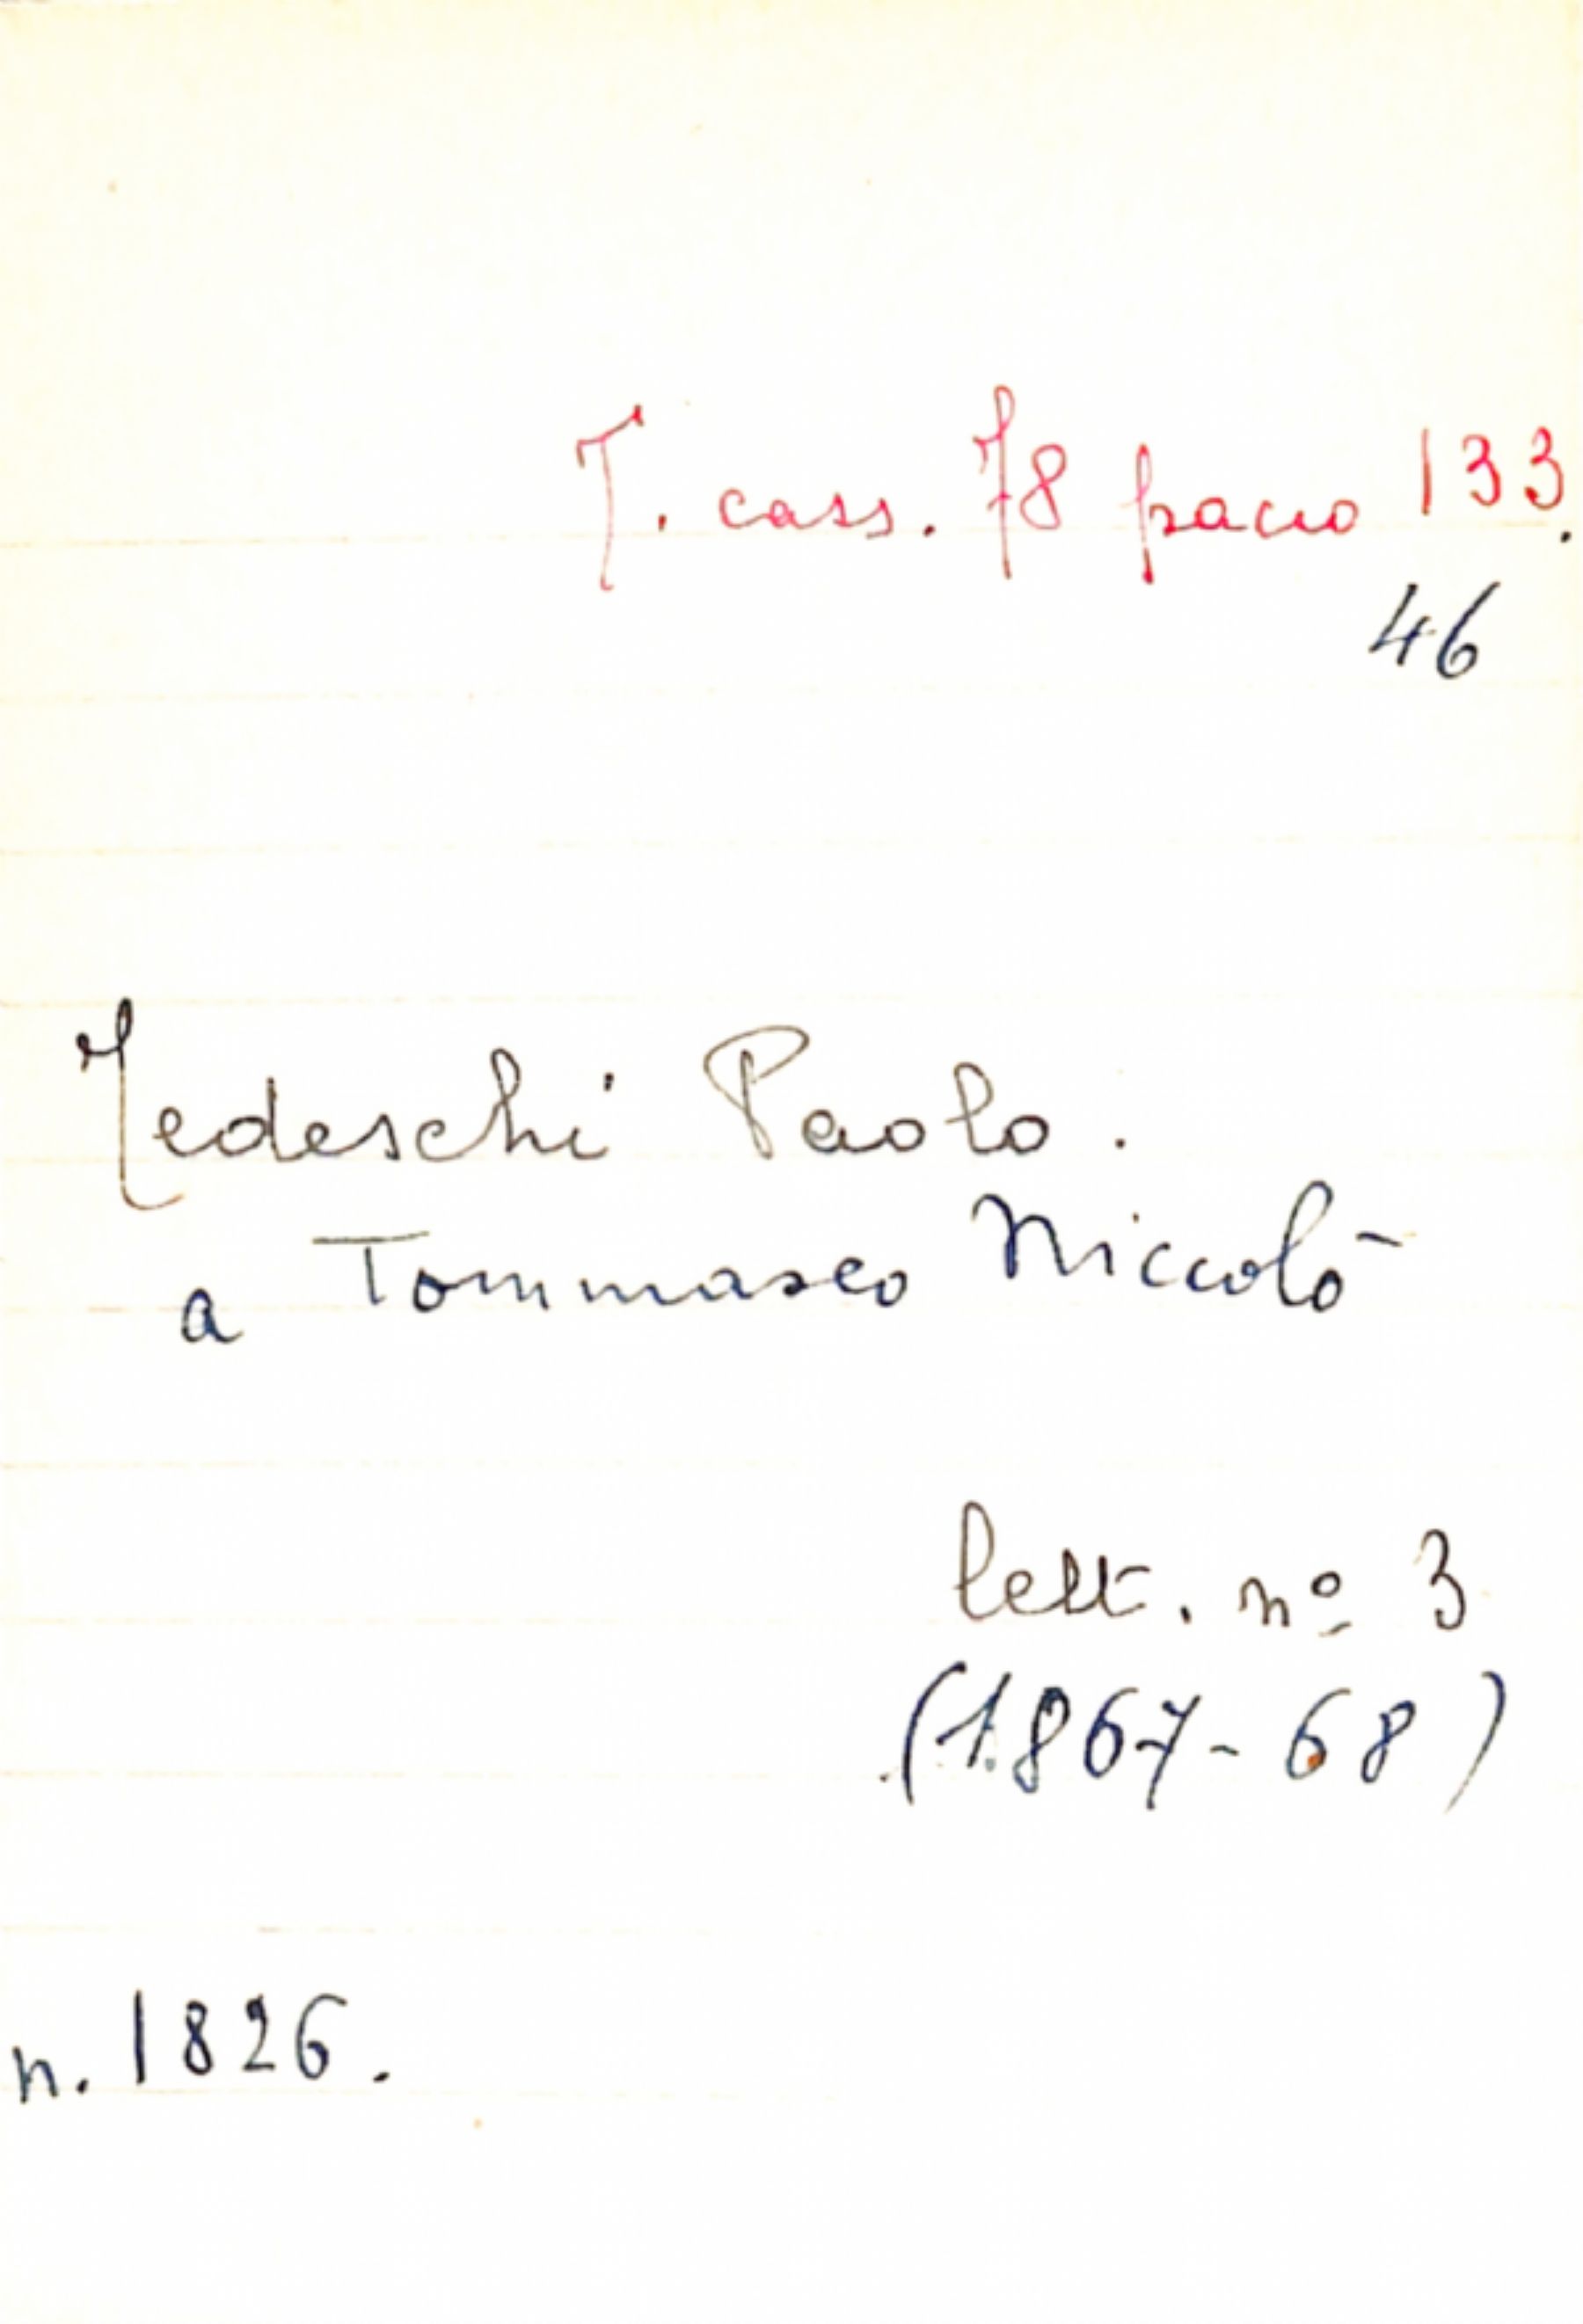 T. cass. 78 pacco 133.
46
Tedeschi Paolo.
a Tommaseo Niccolò
lett. nº 3
(1867-68)
n. 1826.